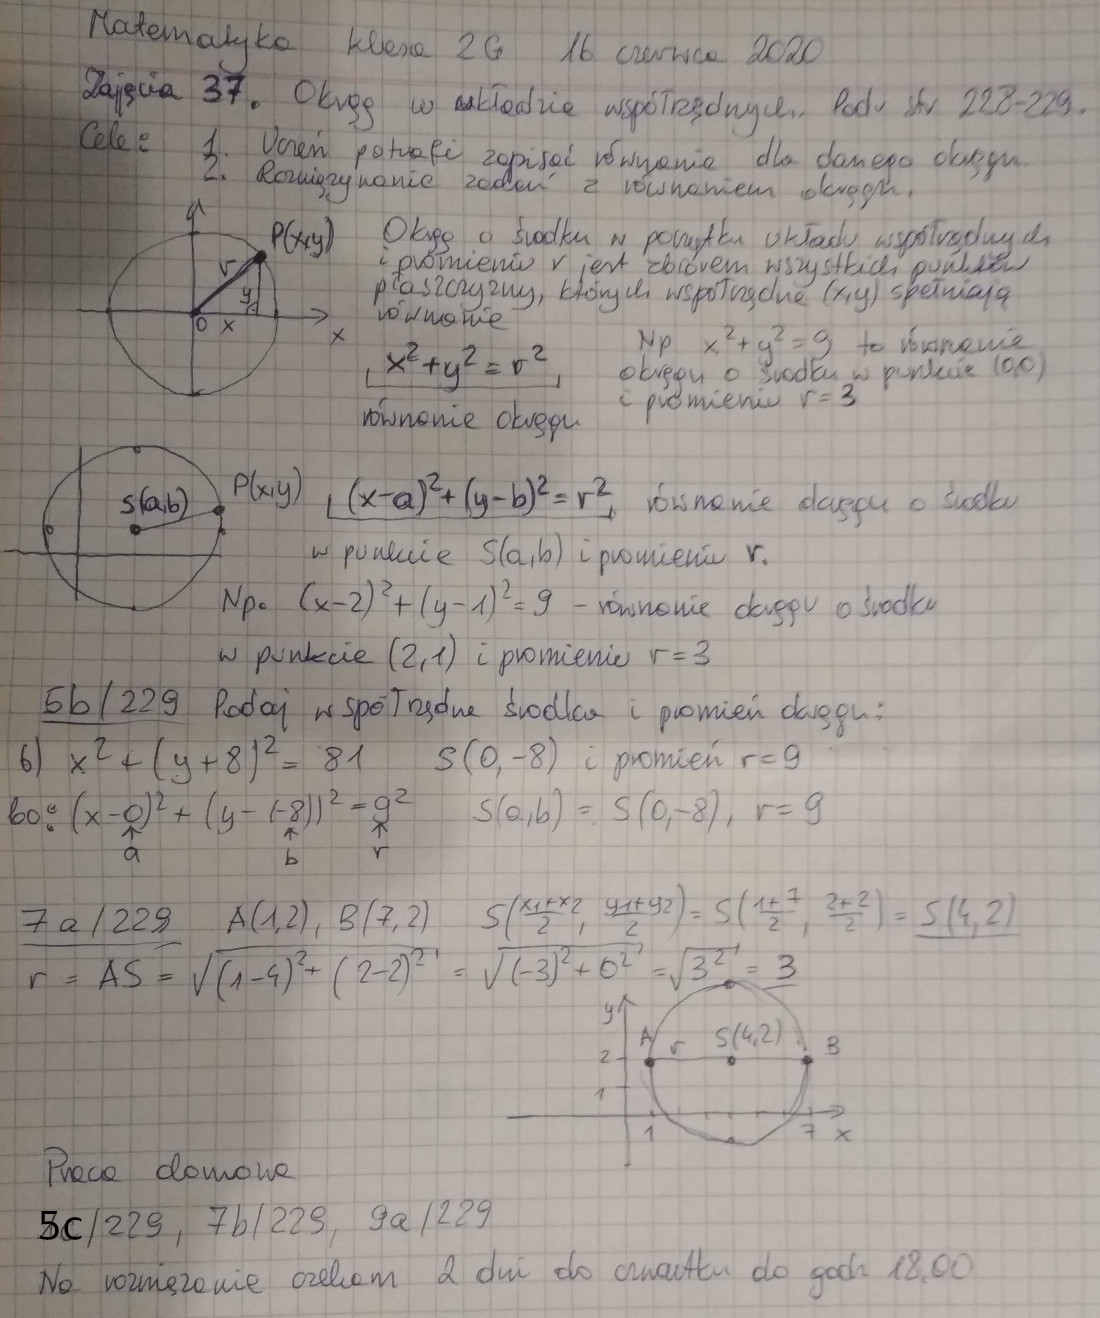 Matematyka klasa 2G 16 czerwca 2020
Zajęcia 37. Okrąg w układzie współrzędnych. Podr str 228-229.
Cele: 1. Uczeń potrafi zapisać równanie dla danego okręgu.
2. Rozwiązywanie zadań z równaniem okręgu.
y P(x,y) r y 0 x x
Okrąg o środku w początku układu współrzędnych
i promieniu r jest zbiorem wszystkich punktów
płaszczyzny, których współrzędne (x,y) spełniają
równanie
x²+y²=r²
równanie okręgu
Np x²+y²=9 to równanie
okręgu o środku w punkcie (0,0)
i promieniu r=3
S(a,b) P(x,y)
(x-a)²+(y-b)²=r², równanie okręgu o środku
w punkcie S(a,b) i promieniu r.
Np. (x-2)²+(y-1)²=9 - równanie okręgu o środku
w punkcie (2,1) i promieniu r=3
5b/229 Podaj współrzędne środka i promień okręgu:
b) x²+(y+8)²= 81 S(0,-8) i promień r=9
bo: (x-0)²+(y-(-8))²=9² S(a,b) = S(0,-8), r=9
a b r
7a/229 A(1,2), B(7,2) S(x1+x2/2, y1+y2/2)=S(1+7/2, 2+2/2)= S(4,2)
r = AS = √(1-4)²+(2-2)² = √(-3)²+0² =√3² = 3
y A r S(4,2) B
2
1
1 7 x
Praca domowa
5c/229, 7b/229, 9a/229
Na rozwiązanie czekam 2 dni do czwartku do godz 18.00